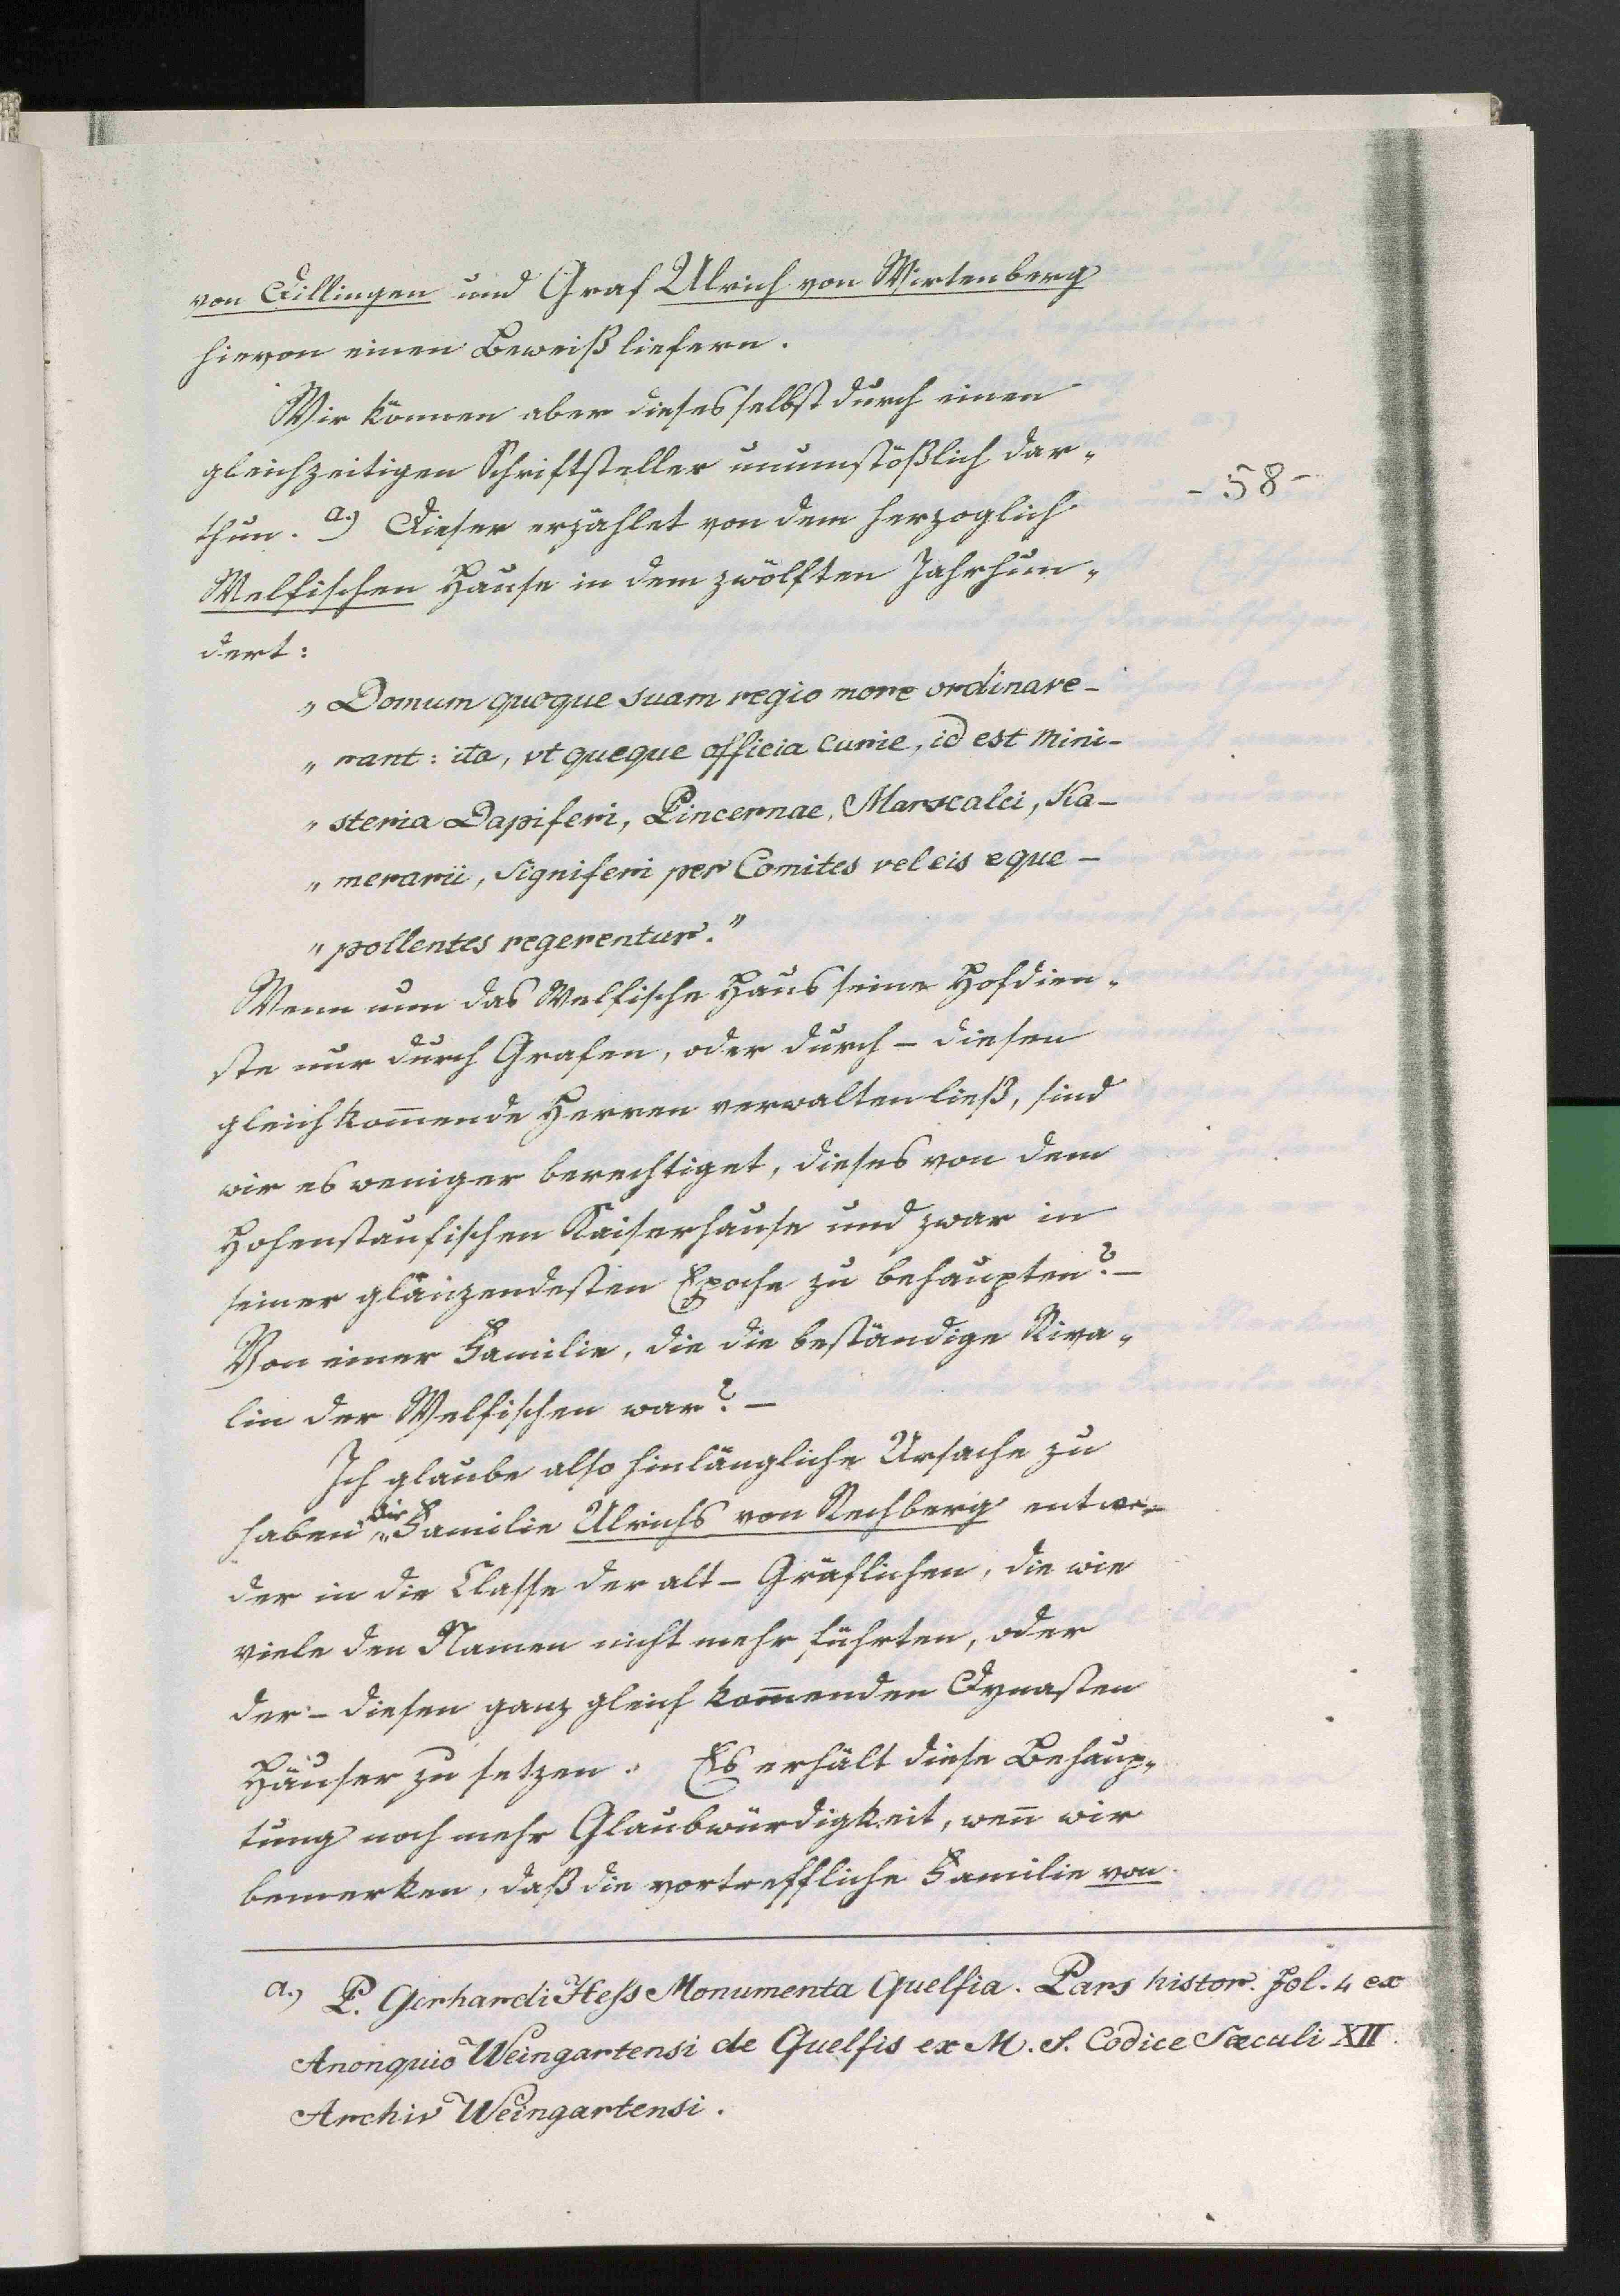 von Dillingen und Graf Ulrich von Wirtenberg
hievon einen Beweiß liefern.
Wir können aber dieses selbst durch einen
gleichzeitigen Schriftsteller unumstößlich dar„
- 58 -
thun. a.) Dieser erzählet von dem herzoglich
Welfischen Hause in dem zwölften Jahrhun„
dert:
„ Domum quoque suam regio more ordinare-
„ rant: ita, vt queque officia curie, id est mini-
„ steria Dapiferi, Pincernae, Marscalci, Ka-
„ merarii, Signiferi per Comites vel eis eque-
„ pollentes regerentur."
Wenn nun das Welfische Haus seine Hofdien„
ste nur durch Grafen, oder durch - diesen
gleichkom̄ende Herren verwalten ließ, sind
wir es weniger berechtiget, dieses von dem
Hohenstaufischen Kaiserhause und zwar in
seiner glänzendesten Epoche zu behaupten? -
Von einer Familie, die die beständige Riva„
lin der Welfischen war? -
Ich glaube also hinlängliche Ursache zu
haben die Familie Ulrichs von Rechberg entwe-
der in die Classe der alt-Gräflichen, die wie
viele den Namen nicht mehr führten, oder
der - diesen ganz gleich kom̄enden Dynasten
Häuser zu setzen. Es erhält diese Behaup„
tung noch mehr Glaubwürdigkeit, wen̄ wir
bemerken, daß die vortreffliche Familie von
a.) P. Gerhardi Hess Monumenta Guelfia. Pars histor. fol. 4 ex
Anonquio Weingartensi de Guelfis ex M. S. Codice Sæculi XII.
Archiv Weingartensi.